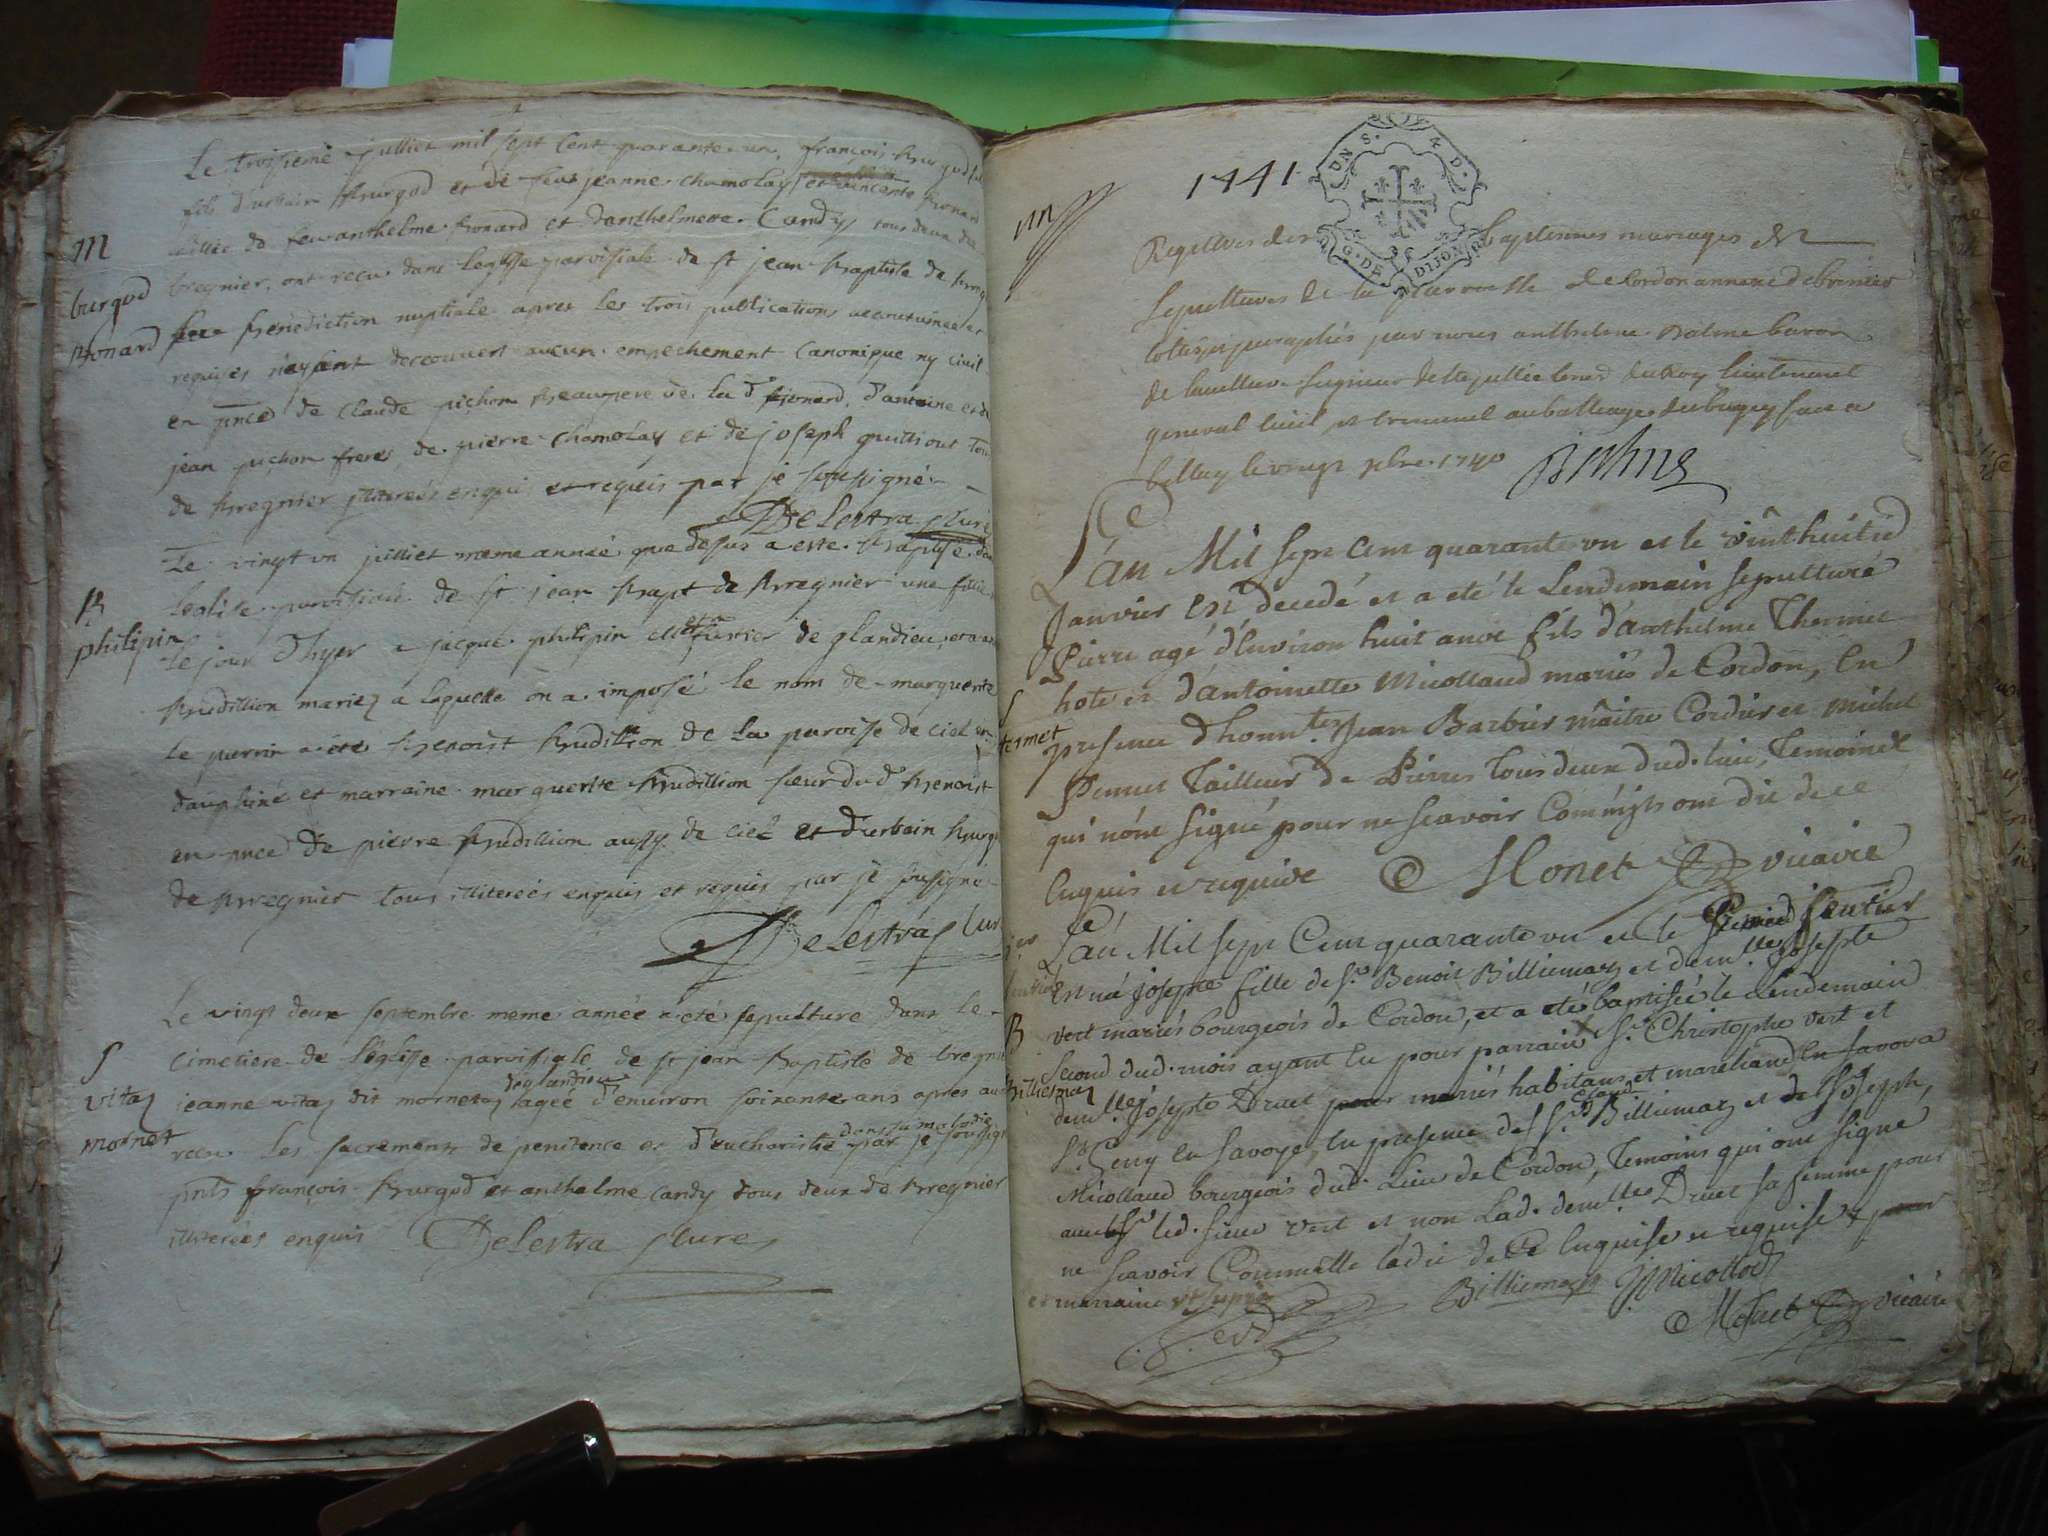 Le troisieme julliet mil sept cent quarante un, françois Burgod
fils durbain Burgod et de feue jeanne chamolay et vincente Bonard
fillie de feu anthelme Bonard et danthelmette Candy tous deux de
M
bregnier, ont recu dans leglise parroissiale de st jean Baptiste de breg
burgod
Bonard
Benediction nuptiale apres les trois publications accoutumées et
requises n'ayant decouvert aucun empechement canonique ny civil
en pnce de claude pichon Beaupere de la de Bonard, d'antoine et de
jean pichon freres, de pierre chamolay et de joseph quittiout tous
de Bregnier illiterés enquis et requis par je soussigné
Delestra Curé
Le vingt un julliet meme année que dessus a este Baptisé dans
leglise parroissiale de st jean Bapt de Bregnier une fille
B
philipin
le jour d'hyer a jacque philipin de glandieu, et a
Budillion mariez a laquelle on a imposé le nom de marguerite
le parrin a été Benoist Budillion de la paroisse de ciel en
dauphiné et marraine marguerite Budillion sœur du d Benoist
en pnce de pierre Budillion aussy de ciel et d'urbain Burgod
de Bregnier tous illiterés enquis et requis par je soussigné
Delestra Curé
Le vingt deux septembre meme année a été sepulturé dans le
S
cimetiere de l'eglise parroissiale de st jean Baptiste de bregnier
vitaz
mornet
jeanne vitaz dit mornetaz de glandieu agée d'environ soixante ans apres avoir
recu les sacrements de penitence et d'eucharistie dans sa maladie par je soussigné
pnts françois Burgod et anthelme candy tous deux de Bregnier
illiterés enquis Delestra Curé
1741
DN S. 4 D.
G. DE DIJON
Registres des baptesmes mariages et
sepultures de la parroisse de Cordon annexe de bregnier
cottés et paraphés par nous anthelme Balme baron
de seigneur de Ste jullie du Roy lieutenant
general civil et criminel au balliage du bugey fait a
belley le vingt xbre 1740 Balme
L'an Mil sept Cent quarante un et le vint huit
Janvier Est decedé et a eté le Lendemain sepulturé
Pierre agé d'Environ huit ans fils d'anthelme Thermet
S
termet
hote et d'Antoinette Micollaud mariés de Cordon, En
presence d'honn.tes Jean Barbier maître Cordier et Michel
Pernet Tailleur de Pierres tous deux dud. lieu, Temoins
qui n'ont signé pour ne sçavoir Comm'ils ont dit de ce
Enquis et requis Monet vicaire
L'an Mil sept Cent quarante un et le Premier fevrier
Est né Josepte fille de Sr. Benoit Billiemaz et dem.lle Josepte
B
Billiemaz
vert mariés bourgeois de Cordon, et a eté baptisée le Lendemain
second dud. mois ayant Eu pour parrain Sr. Christophe vert et
dem.lle Josepte Druet mariés habitans et marchand En Savoye a
St. Geny En Savoye, En presence de Sr. Claude Billiemaz et de Sr. Joseph
Micollaud bourgeois dud. Lieu de Cordon, Temoins qui ont signé
avec led. sieur vert et non Lad. dem.lle Druet sa femme pour
ne scavoir Commelle l'a dit de Ce Enquise et requise
et marraine ut supra Billiemaz J Micollod
vert
Monet vicaire